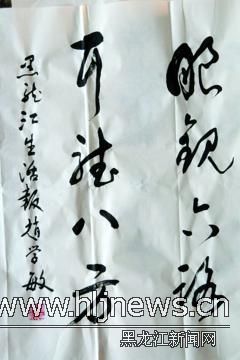 眼观六路
耳听八方
黑龙江生活报赵学敏
www.hljnews.cn
黑龙江新闻网